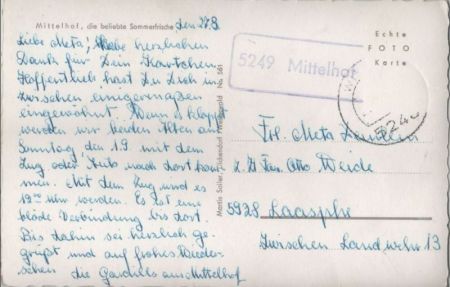 Mittelhof, die beliebte Sommerfrische
den 27.8
Liebe Meta! Habe herzlichen
Dank für Dein Kärtchen.
Hoffentlich hast Du Dich in
zwischen einigermaßen
eingewöhnt. Wenn es klappt
werden wir beiden Alten am
Sonntag, den 19. mit dem
Zug oder Auto nach dort kom
men. Mit dem Zug wird es
19 Uhr werden. Es ist eine
blöde Verbindung bis dort.
Bis dahin sei herzlich ge-
grüßt und auf frohes Wieder-
sehen die aus Mittelhof
5249 Mittelhof
Echte
FOTO
Karte
Martin Sailer, No. 561
Frl. Meta
z. Zt. Fam. Otto Weide
5928 Laasphe
Zwischen Landwehr 13